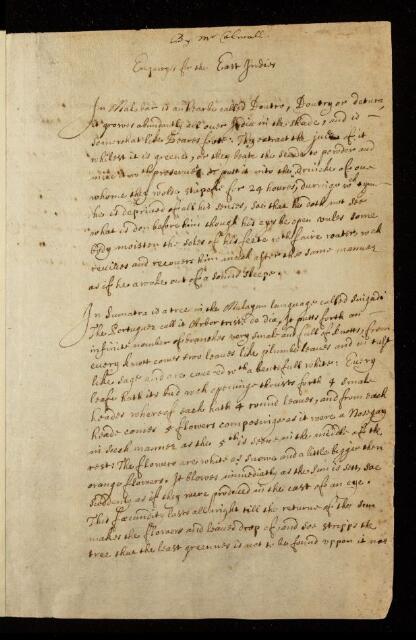 By Mr Colwall.
Enquirys for the East Indies
In Malabar is an hearbe called Doutro, Doutry or datura
it growes abundantly all over India in the shade, and is
somewhat like Beares foote: They extract the juce of it
whilest it is greene, or they beate the seeds to powder and
mixe it wth preserves, or put it into the drincke of one
whome they wold stupefie for 24 houres, during wch tyme
he is deprived of all his senses, soe that he doth not see
what is don before him though his eys be open unles some
body moisten the soles of his feete with faire water wch
revives and recovers him much after the same manner
as if he awoke out of a sound sleepe.
In Sumatra is a tree in the Malayan language called Singadi
The Portuguez call it Arbor triste de dia, It putts forth an
infinite number of branches very small and full of knotts, from
every knott comes two leaves like plumbe leaves and
like sage and are covered wth a beutifull white: Every
leafe hath its bud wch openinge thrusts forth 4 small
heades whereof each hath 4 round leaves, and from each
heade comes 5 flowers composeinge as it were a Nosegay
in such manner as the 5th is seene in the middle of the
rest: The flowers are white as snowe and a little bigger then
orange flowers. It blowes immediatly as the sun is sett, soe
suddenly as if they were produced in the cast of an eye.
This fecundity lasts all night till the returne of the sun
makes the flowers and leaves drop of and soe stripps the
tree that the least greenes is not to be found uppon it nor